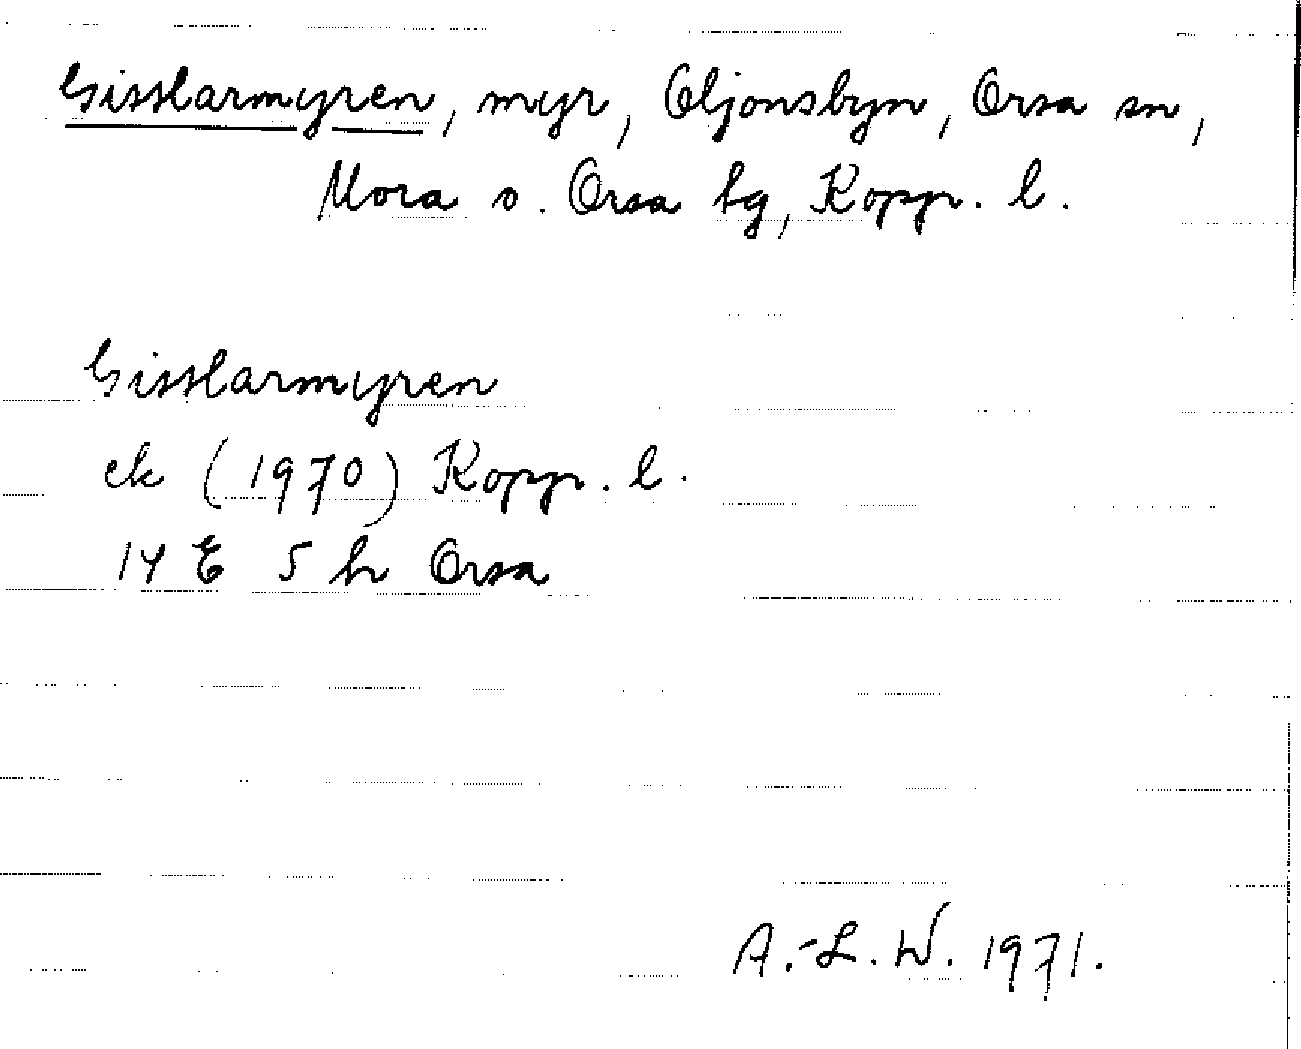 Gisslarmyren, myr, Oljonsbyn, Orsa sn,
Mora o. Orsa tg, Kopp. l.
Gisslarmyren
ek (1970) Kopp. l.
14 E 5 h Orsa
A.-L. W. 1971.